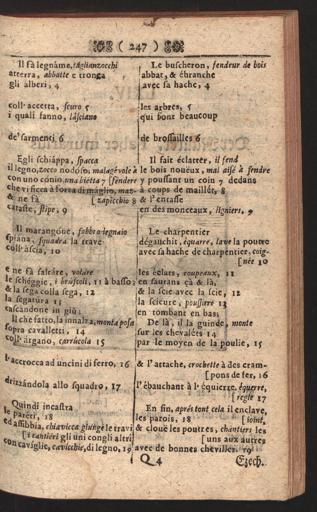 ( 247 )
Il fà legnáme, táglianzocchi
atterra, abbatte e tronga
gli alberi, 4
coll' accetta, scuro 5
i quali fanno, láſciano
de' ſarmenti 6
Egli ſchiáppa, ſpacca
il legno, zocco nodoſo, malagévole à
con uno cónio, una bietta 7 [fendere
che vi ficca à forza di máglio, maz-
& ne fà [zapicchio 8
cataſte, ſtipe, 9
Il marangóne, fabbro-legnaio
ſpiana, ſquadra la trave
coll' áſcia, 10
e ne fà ſaltáre, voláre
le ſchéggie, i bruſcoli, 11 à baſſo;
& la ſega colla ſega, 12
la ſegatúra 13
caſcandone in giù;
Il che fatto, la innalza, monta poſa
ſopra cavalletti, 14
coll' árgano, carrúcola 15
l' accrocca ad uncini di ferro, 16
drizzándola allo ſquadro, 17
Quindi incaſtra
le paréti, 18
ed affibbia, chiavicca giunge le travi
[i cantiéri gli uni congli altri
con cavíglie, cavicchie, di legno, 19
Le buſcheron, fendeur de bois
abbat, & ébranche
avec ſa hache, 4
les arbres, 5
qui font beaucoup
de broſſailles 6
Il fait éclatter, il fend
le bois noüeux, mal aiſé à fendre
y pouſſant un coin 7 dedans
à coups de maillet, 8
& l' entaſſe
en des monceaux, ligniers, 9
Le charpentier
dégauchit, équarre, lave la poutre
avec ſa hache de charpentier, coig-
[née 10
les éclats, coupeaux, 11
en ſautans çà & là,
& la ſcie avec la ſcie, 12
la ſcieure, pouſſiere 13
en tombant en bas;
De là, il la guinde, monte
ſur les chevaléts 14
par le moyen de la poulie, 15
& l' attache, crochette à des cram-
[pons de fer, 16
l' ébauchant à l' équierre, équerre,
[regle 17
En fin, aprés tont cela il enclave,
les parois, 18 [joint,
& cloué les poutres, chantiers les
[uns aux autres
avec de bonnes chevilles. 19
Q 4 Ezech.